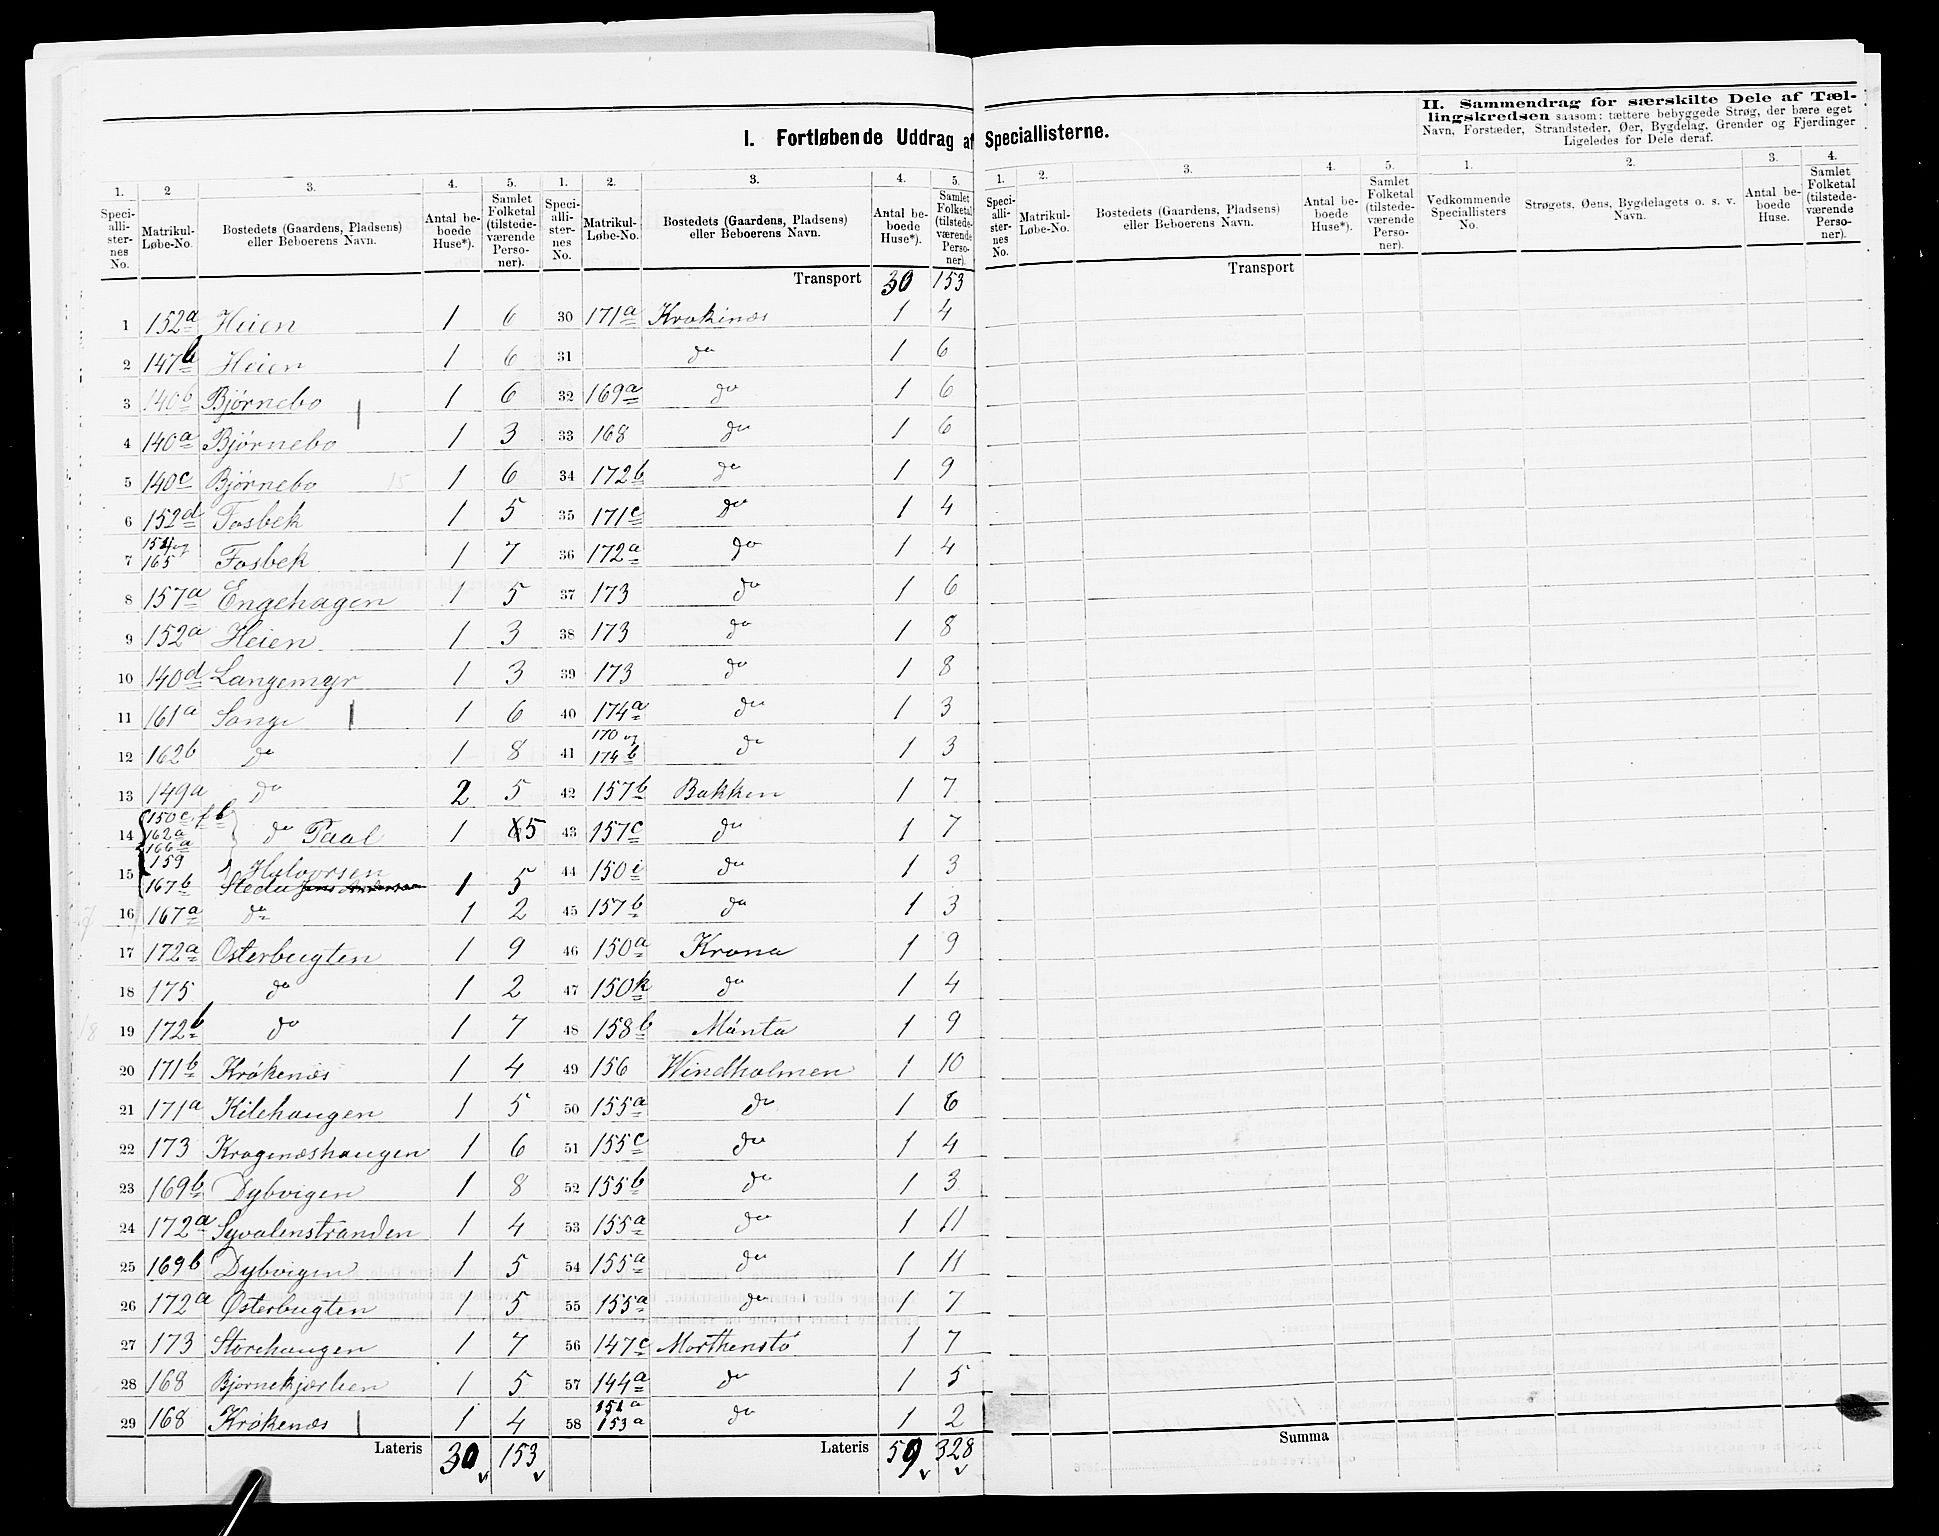 I. Fortløbende Uddrag af Speciallisterne.
II. Sammendrag for særskilte Dele af Tællingskredsen saasom: tættere bebyggede Strøg, der bære eget Navn, Forstæder, Strandsteder, Øer, Bygdelag, Grender og Fjerdinger Ligeledes for Dele deraf.
1. 2 3. 4. 5. 1. 2. 3. 4. 5. 1. 2. 3. 4. 5. 1. 2. 3. 4.
Speciallisternes No. Matrikul-Løbe-No. Bostedets (Gaardens, Pladsens) eller Beboerens Navn. Antal beboede Huse*). Samlet Folketal (tilstedeværende Personer).
Speciallisternes No. Matrikul-Løbe-No. Bostedets (Gaardens, Pladsens) eller Beboerens Navn. Antal beboede Huse*). Samlet Folketal (tilstedeværende Personer).
Speciallisternes No. Matrikul-Løbe-No. Bostedets (Gaardens, Pladsens) eller Beboerens Navn. Antal beboede Huse*). Samlet Folketal (tilstedeværende Personer).
Vedkommende Speciallisters No. Strøgets, Øens, Bygdelagets o. s. v. Navn. Antal beboede Huse. Samlet Folketal (tilstedeværende Personer).
1 152a Heien 1 6
2 147b Heien 1 6
3 140b Bjørnebo 1 6
4 140a Bjørnebo 1 3
5 140c Bjørnebo 15 1 6
6 152d Fosbek 1 5
7 154 og 165 Fosbek 1 7
8 157a Engehagen 1 5
9 152a Heien 1 3
10 140d Langemyr 1 3
11 161a Sange 1 6
12 162b Do 1 8
13 149a Do 2 5
14 150c, f b 162a 166a do Paal 1 5
15 159 167b Halvorsen 1 5
16 167a do 1 2
17 172a Østerbugten 1 9
18 175 do 1 2
19 172b do 1 7
20 171b Krókenæs 1 4
21 171a Kilehaugen 1 5
22 173 Kragenæshaugen 1 6
23 169b Dybvigen 1 8
24 172a Syvalenstranden 1 4
25 169b Dybvigen 1 5
26 172a Østerbugten 1 5
27 173 Storehaugen 1 7
28 168 Bjornekjærlien 1 5
29 168 Krókenæs 1 4
Lateris 30 153
Transport 30 153
30 171a Krokenæs 1 4
31 do 1 6
32 169a do 1 6
33 168 do 1 6
34 172b do 1 9
35 171c do 1 4
36 172a do 1 4
37 173 do 1 6
38 173 do 1 8
39 173 do 1 8
40 174a do 1 3
41 170 og 174b do 1 3
42 157b Bakken 1 7
43 157c do 1 7
44 150i do 1 3
45 157b do 1 3
46 150a Krona 1 9
47 150k do 1 4
48 158b Mánta 1 9
49 156 Windholmen 1 10
50 155a do 1 6
51 155c do 1 4
52 155b do 1 3
53 155a do 1 11
54 155a do 1 11
55 155a do 1 7
56 147c Morthenstó 1 7
57 144a do 1 5
58 151a 153a do 1 2
Lateris 59 328
Transport
Summa